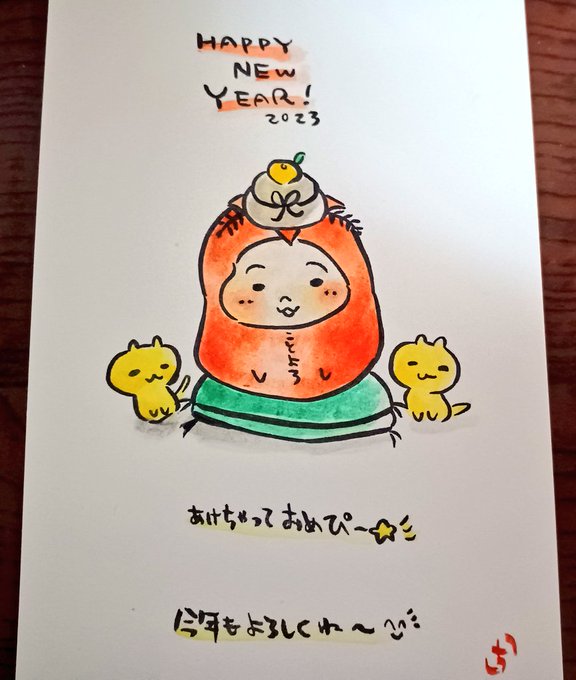 HAPPY
NEW
YEAR!
2023
ことよろ
あけちゃって おめぴ〜
今年も よろしくね〜